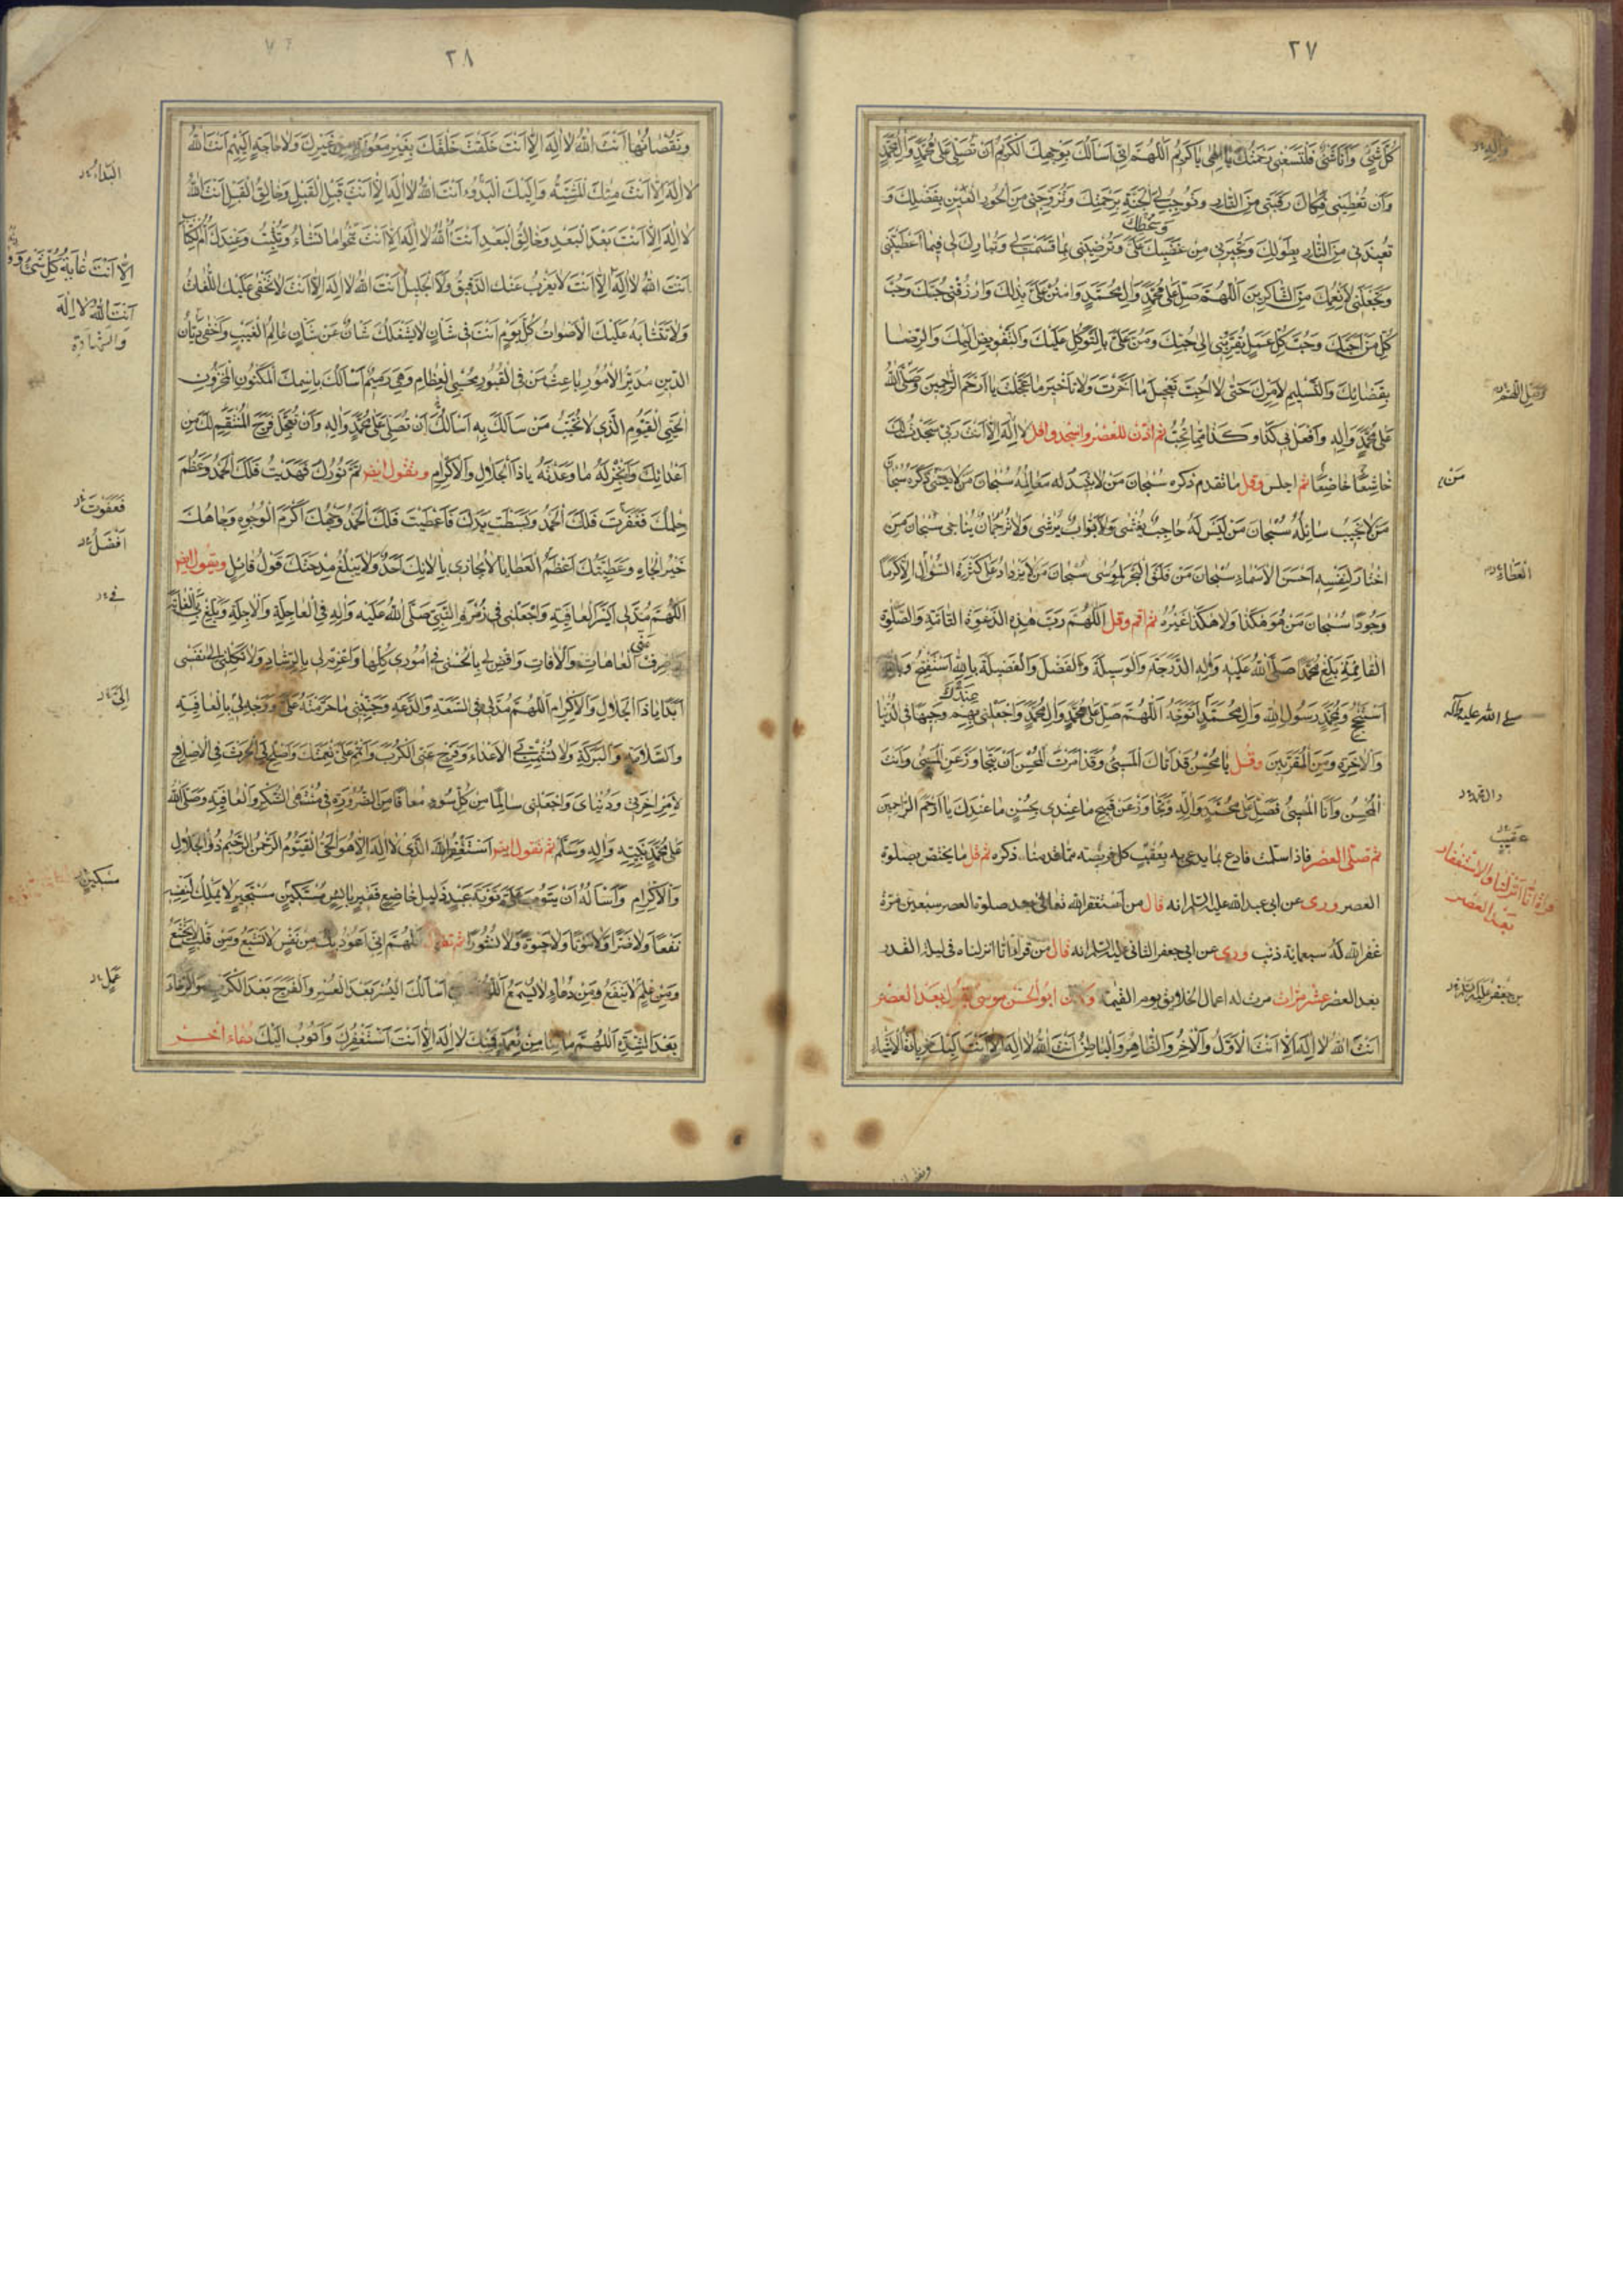 ٢٧
كُلَّ شَيْءٍ وَأَنَا شَيْءٌ فَلْتَسَعْنِي رَحْمَتُكَ يَا إِلٰهِي يَا كَرِيمُ اَللّٰهُمَّ إِنِّي أَسْأَلُكَ بِوَجْهِكَ الْكَرِيمِ أَنْ تُصَلِّيَ عَلَى مُحَمَّدٍ وَآلِ مُحَمَّدٍ
وَأَنْ تُعْطِيَنِي فَكَاكَ رَقَبَتِي مِنَ النَّارِ وَتُوجِبَ لِيَ الْجَنَّةَ بِرَحْمَتِكَ وَتُزَوِّجَنِي مِنَ الْحُورِ الْعِينِ بِفَضْلِكَ وَ
تُعِيذَنِي مِنَ النَّارِ بِطَوْلِكَ وَتُجِيرَنِي مِنْ غَضَبِكَ وَسَخَطِكَ عَلَيَّ وَتُرْضِيَنِي بِمَا قَسَمْتَ لِي وَتُبَارِكَ لِي فِيمَا أَعْطَيْتَنِي
وَتَجْعَلَنِي لِأَنْعُمِكَ مِنَ الشَّاكِرِينَ اَللّٰهُمَّ صَلِّ عَلَى مُحَمَّدٍ وَآلِ مُحَمَّدٍ وَامْنُنْ عَلَيَّ بِذٰلِكَ وَارْزُقْنِي حُبَّكَ وَحُبَّ
كُلِّ مَنْ أَحَبَّكَ وَحُبَّ كُلِّ عَمَلٍ يُقَرِّبُنِي إِلَى حُبِّكَ وَمُنَّ عَلَيَّ بِالتَّوَكُّلِ عَلَيْكَ وَالتَّفْوِيضِ إِلَيْكَ وَالرِّضَا
بِقَضَائِكَ وَالتَّسْلِيمِ لِأَمْرِكَ حَتَّى لَا أُحِبَّ تَعْجِيلَ مَا أَخَّرْتَ وَلَا تَأْخِيرَ مَا عَجَّلْتَ يَا أَرْحَمَ الرَّاحِمِينَ وَصَلَّى اللهُ
عَلَى مُحَمَّدٍ وَآلِهِ وَافْعَلْ بِي كَذَا وَكَذَا مِمَّا تُحِبُّ ثم أذّن للعصر واسجد وقل لَا إِلٰهَ إِلَّا أَنْتَ رَبِّي سَجَدْتُ لَكَ
خَاشِعًا خَاضِعًا ثم اجلس وقل ما تقدم ذكره سُبْحَانَ مَنْ لَا تَبِيدُ لَهُ مَعَالِمُهُ سُبْحَانَ مَنْ لَا يَنْسَى ذَكَرَهُ سُبْحَانَ
مَنْ لَا يُخَيِّبُ سَائِلَهُ سُبْحَانَ مَنْ لَيْسَ لَهُ حَاجِبٌ يُغْشَى وَلَا بَوَّابٌ يُرْشَى وَلَا تَرْجُمَانٌ يُنَاجَى سُبْحَانَ مَنِ
اخْتَارَ لِنَفْسِهِ أَحْسَنَ الْأَسْمَاءِ سُبْحَانَ مَنْ فَلَقَ الْبَحْرَ لِمُوسَى سُبْحَانَ مَنْ لَا يَزْدَادُ عَلَى كَثْرَةِ السُّؤَالِ إِلَّا كَرَمًا
وَجُودًا سُبْحَانَ مَنْ هُوَ هٰكَذَا وَلَا هٰكَذَا غَيْرُهُ ثم أقم وقل اَللّٰهُمَّ رَبَّ هٰذِهِ الدَّعْوَةِ التَّامَّةِ وَالصَّلٰوةِ
الْقَائِمَةِ بَلِّغْ مُحَمَّدًا صَلَّى اللهُ عَلَيْهِ وَآلِهِ الدَّرَجَةَ وَالْوَسِيلَةَ وَالْفَضْلَ وَالْفَضِيلَةَ بِاللهِ أَسْتَفْتِحُ وَبِاللهِ
أَسْتَنْجِحُ وَبِمُحَمَّدٍ رَسُولِ اللهِ وَآلِ مُحَمَّدٍ أَتَوَجَّهُ اَللّٰهُمَّ صَلِّ عَلَى مُحَمَّدٍ وَآلِ مُحَمَّدٍ وَاجْعَلْنِي بِهِمْ عِنْدَكَ وَجِيهًا فِي الدُّنْيَا
وَالْآخِرَةِ وَمِنَ الْمُقَرَّبِينَ وقل يَا مُحْسِنُ قَدْ أَتَاكَ الْمُسِيءُ وَقَدْ أَمَرْتَ الْمُحْسِنَ أَنْ يَتَجَاوَزَ عَنِ الْمُسِيءِ وَأَنْتَ
الْمُحْسِنُ وَأَنَا الْمُسِيءُ فَصَلِّ عَلَى مُحَمَّدٍ وَآلِهِ وَتَجَاوَزْ عَنْ قَبِيحِ مَا عِنْدِي بِحُسْنِ مَا عِنْدَكَ يَا أَرْحَمَ الرَّاحِمِينَ
ثم تصلى العصر فاذا سلمت فادع بما يدعى به بعقيب كل فريضة مما قدمنا ذكره ثم قل ما يختص بصلوة
العصر وروى عن ابى عبد الله عليه السلم انه قال من استغفر الله تعالى بعد صلوة العصر سبعين مرة
غفر الله له سبعماية ذنب وروى عن ابى جعفر الثانى عليه السلم انه قال من قرأ انا انزلناه فى ليلة القدر
بعد العصر عشر مرات مرت له اعمال الخلايق يوم القيمة وكان ابو الحسن موسى يقرأ بعد العصر
أَنْتَ اللهُ لَا إِلٰهَ إِلَّا أَنْتَ الْأَوَّلُ وَالْآخِرُ وَالظَّاهِرُ وَالْبَاطِنُ أَنْتَ اللهُ لَا إِلٰهَ إِلَّا أَنْتَ إِلَيْكَ زِيَادَةُ الْأَشْيَاءِ
وآله
مَنْ
صلى الله عليه وآله
عقيب
قراءة انا انزلنا والاستغفار
بعد العصر
بن جعفر عليه السلم
٢٨
وَنُقْصَانُهَا أَنْتَ اللهُ لَا إِلٰهَ إِلَّا أَنْتَ خَلَقْتَ خَلْقَكَ بِغَيْرِ مَعُونَةٍ مِنْ غَيْرِكَ وَلَا حَاجَةٍ إِلَيْهِمْ أَنْتَ اللهُ
لَا إِلٰهَ إِلَّا أَنْتَ مِنْكَ الْمَشِيَّةُ وَإِلَيْكَ الْبَدْءُ أَنْتَ اللهُ لَا إِلٰهَ إِلَّا أَنْتَ قَبْلَ الْقَبْلِ وَخَالِقُ الْقَبْلِ أَنْتَ اللهُ
لَا إِلٰهَ إِلَّا أَنْتَ بَعْدَ الْبَعْدِ وَخَالِقُ الْبَعْدِ أَنْتَ اللهُ لَا إِلٰهَ إِلَّا أَنْتَ تَمْحُو مَا تَشَاءُ وَتُثْبِتُ وَعِنْدَكَ أُمُّ الْكِتَابِ
أَنْتَ اللهُ لَا إِلٰهَ إِلَّا أَنْتَ لَا يَعْزُبُ عَنْكَ الدَّقِيقُ وَلَا الْجَلِيلُ أَنْتَ اللهُ لَا إِلٰهَ إِلَّا أَنْتَ لَا تَخْفَى عَلَيْكَ اللُّغَاتُ
وَلَا تَتَشَابَهُ عَلَيْكَ الْأَصْوَاتُ كُلَّ يَوْمٍ أَنْتَ فِي شَأْنٍ لَا يَشْغَلُكَ شَأْنٌ عَنْ شَأْنٍ عَالِمُ الْغَيْبِ وَأَخْفَى دَيَّانُ
الدِّينِ مُدَبِّرُ الْأُمُورِ بَاعِثُ مَنْ فِي الْقُبُورِ مُحْيِي الْعِظَامِ وَهِيَ رَمِيمٌ أَسْأَلُكَ بِاسْمِكَ الْمَكْنُونِ الْمَخْزُونِ
الْحَيِّ الْقَيُّومِ الَّذِي لَا تُخَيِّبُ مَنْ سَأَلَكَ بِهِ أَسْأَلُكَ أَنْ تُصَلِّيَ عَلَى مُحَمَّدٍ وَآلِهِ وَأَنْ تُعَجِّلَ فَرَجَ الْمُنْتَقِمِ لَكَ مِنْ
أَعْدَائِكَ وَأَنْجِزْ لَهُ مَا وَعَدْتَهُ يَا ذَا الْجَلَالِ وَالْإِكْرَامِ وتقول ايضا تَمَّ نُورُكَ فَهَدَيْتَ فَلَكَ الْحَمْدُ وَعَظُمَ
حِلْمُكَ فَغَفَرْتَ فَلَكَ الْحَمْدُ وَبَسَطْتَ يَدَكَ فَأَعْطَيْتَ فَلَكَ الْحَمْدُ وَجْهُكَ أَكْرَمُ الْوُجُوهِ وَجَاهُكَ
خَيْرُ الْجَاهِ وَعَطِيَّتُكَ أَعْظَمُ الْعَطَايَا لَا يُجَازِي بِآلَائِكَ أَحَدٌ وَلَا يَبْلُغُ مِدْحَتَكَ قَوْلُ قَائِلٍ وتقول ايضا
اَللّٰهُمَّ مُدَّ لِي أَيْسَرَ الْعَافِيَةِ وَاجْعَلْنِي فِي زُمْرَةِ النَّبِيِّ صَلَّى اللهُ عَلَيْهِ وَآلِهِ فِي الْعَاجِلَةِ وَالْآجِلَةِ وَبَلِّغْ بِيَ الْغَايَةَ
وَاصْرِفْ عَنِّي الْعَاهَاتِ وَالْآفَاتِ وَاقْضِ لِي بِالْحُسْنَى فِي أُمُورِي كُلِّهَا وَاعْزِمْ لِي بِالرَّشَادِ وَلَا تَكِلْنِي إِلَى نَفْسِي
أَبَدًا يَا ذَا الْجَلَالِ وَالْإِكْرَامِ اَللّٰهُمَّ مُدَّ لِي فِي السَّعَةِ وَالدَّعَةِ وَجَنِّبْنِي مَا حَرَّمْتَهُ عَلَيَّ وَوَجِّهْ لِي بِالْعَافِيَةِ
وَالسَّلَامَةِ وَالْبَرَكَةِ وَلَا تُشْمِتْ بِيَ الْأَعْدَاءَ وَفَرِّجْ عَنِّي الْكَرْبَ وَأَتْمِمْ عَلَيَّ نِعْمَتَكَ وَأَصْلِحْ لِيَ الْحَرْثَ فِي الْإِصْلَاحِ
لِأَمْرِ آخِرَتِي وَدُنْيَايَ وَاجْعَلْنِي سَالِمًا مِنْ كُلِّ سُوءٍ مُعَافًا مِنَ الضَّرُورَةِ فِي مُنْتَهَى الشُّكْرِ وَالْعَافِيَةِ وَصَلَّى اللهُ
عَلَى مُحَمَّدٍ نَبِيِّهِ وَآلِهِ وَسَلَّمَ ثم تقول ايضا أَسْتَغْفِرُ اللهَ الَّذِي لَا إِلٰهَ إِلَّا هُوَ الْحَيُّ الْقَيُّومُ الرَّحْمٰنُ الرَّحِيمُ ذُو الْجَلَالِ
وَالْإِكْرَامِ وَأَسْأَلُهُ أَنْ يَتُوبَ عَلَيَّ تَوْبَةَ عَبْدٍ ذَلِيلٍ خَاضِعٍ فَقِيرٍ بَائِسٍ مُسْتَكِينٍ مُسْتَجِيرٍ لَا يَمْلِكُ لِنَفْسِهِ
نَفْعًا وَلَا ضَرًّا وَلَا مَوْتًا وَلَا حَيٰوةً وَلَا نُشُورًا ثم تقول اَللّٰهُمَّ إِنِّي أَعُوذُ بِكَ مِنْ نَفْسٍ لَا تَشْبَعُ وَمِنْ قَلْبٍ لَا يَخْشَعُ
وَمِنْ عِلْمٍ لَا يَنْفَعُ وَمِنْ دُعَاءٍ لَا يُسْمَعُ اَللّٰهُمَّ أَسْأَلُكَ الْيُسْرَ بَعْدَ الْعُسْرِ وَالْفَرَجَ بَعْدَ الْكَرْبِ وَالرَّخَاءَ
بَعْدَ الشِّدَّةِ اَللّٰهُمَّ مَا بِنَا مِنْ نِعْمَةٍ فَمِنْكَ لَا إِلٰهَ إِلَّا أَنْتَ أَسْتَغْفِرُكَ وَأَتُوبُ إِلَيْكَ دعاء آخر
البداء
إِلَّا أَنْتَ غَايَةُ كُلِّ شَيْءٍ وَ
أَنْتَ اللهُ لَا إِلٰهَ
وَالشَّهَادَةِ
فَعَفَوْتَ
أَفْضَلُ
فِي
إِلَى
مسكين
عمل